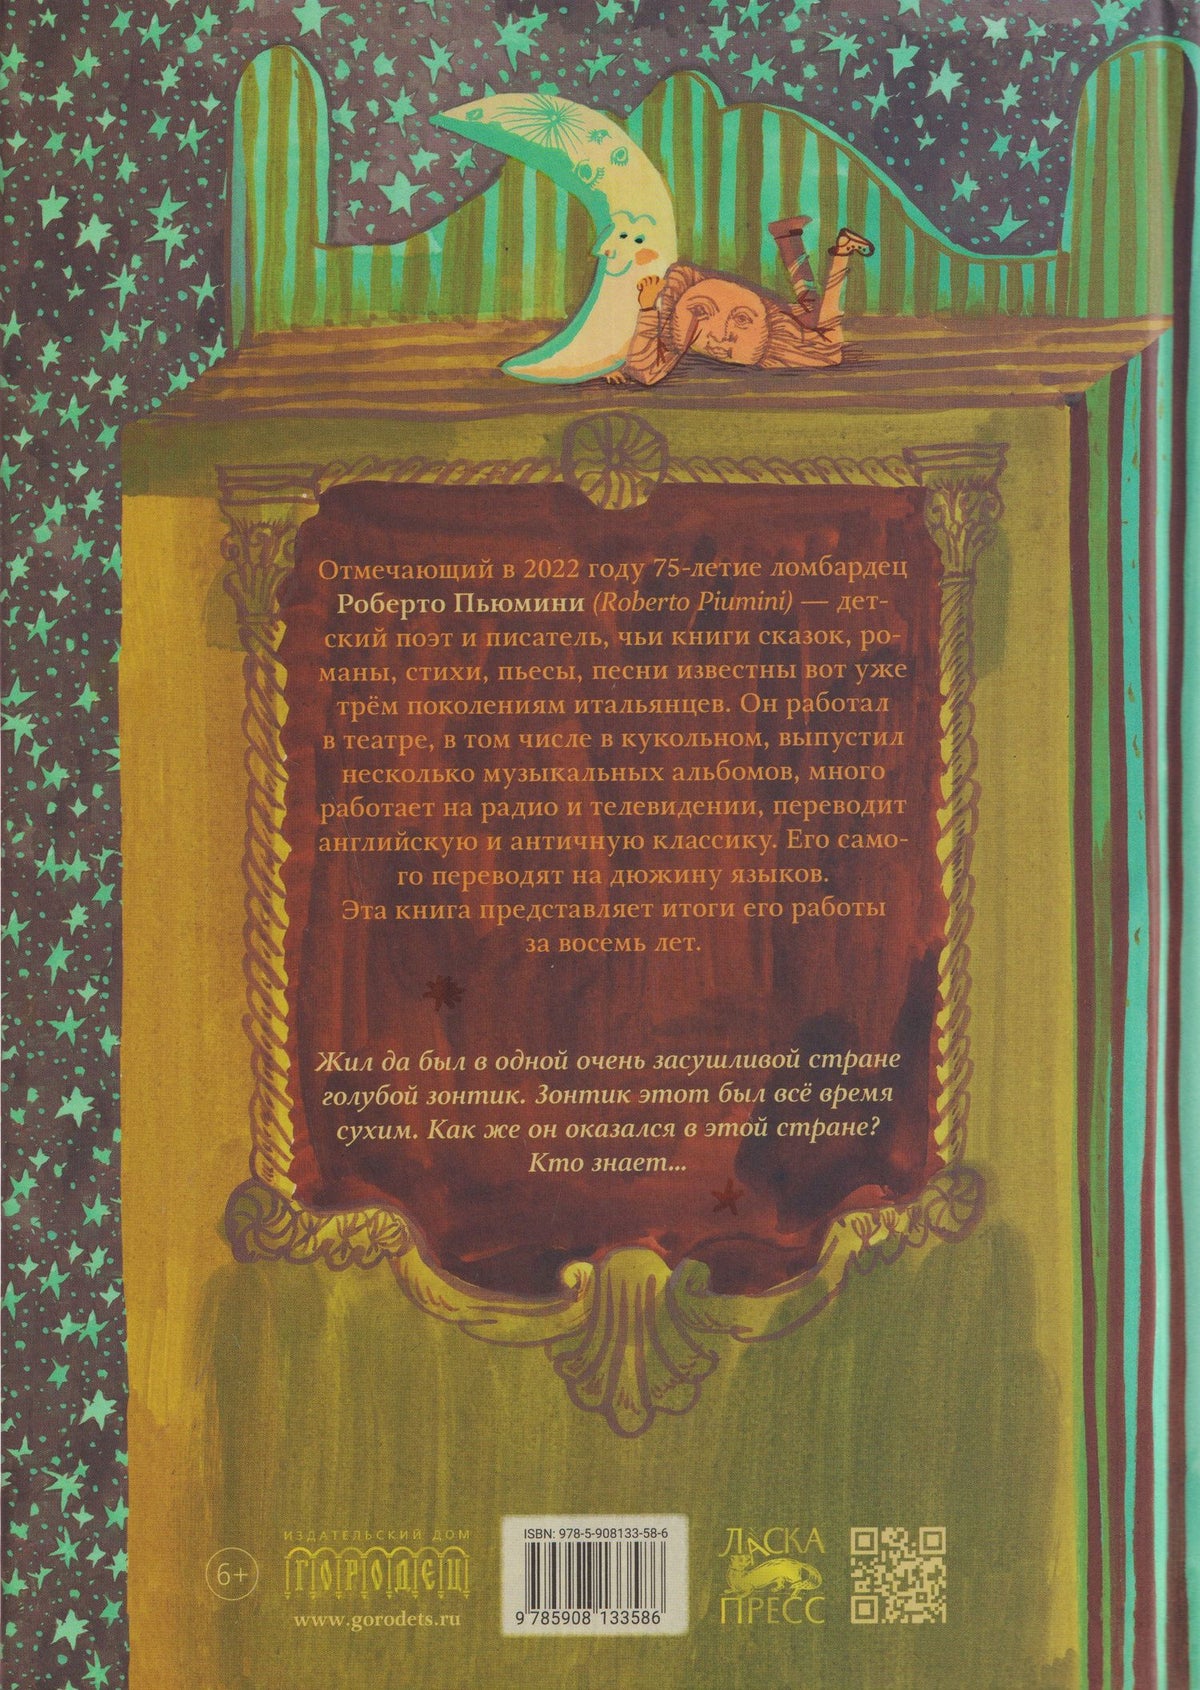 Отмечающий в 2022 году 75-летие ломбардец
Роберто Пьюмини (Roberto Piumini) — дет-
ский поэт и писатель, чьи книги сказок, ро-
маны, стихи, пьесы, песни известны вот уже
трём поколениям итальянцев. Он работал
в театре, в том числе в кукольном, выпустил
несколько музыкальных альбомов, много
работает на радио и телевидении, переводит
английскую и античную классику. Его само-
го переводят на дюжину языков.
Эта книга представляет итоги его работы
за восемь лет.
Жил да был в одной очень засушливой стране
голубой зонтик. Зонтик этот был всё время
сухим. Как же он оказался в этой стране?
Кто знает...
6+
ИЗДАТЕЛЬСКИЙ ДОМ
ГОРОДЕЦ
www.gorodets.ru
ISBN: 978-5-908133-58-6
9 785908 133586
ЛАСКА
ПРЕСС